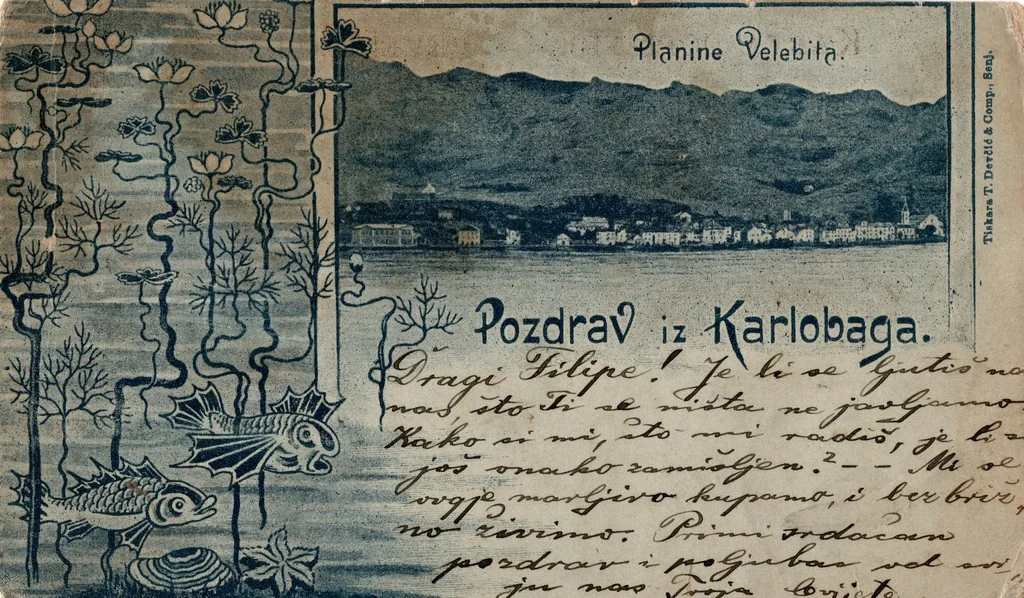 Planine Velebita.
Tiskara T. Devčić & Comp., Senj.
Pozdrav iz Karlobaga.
Dragi Filipe! Je li se ljutiš na
nas, što Ti se ništa ne javljamo.
Kako si mi, što mi radiš, je li
još onako zamišljen? - - Mi se
ovgje marljivo kupamo, i bezbriž
no živimo. Primi srdačan
pozdrav i poljubac od svi
ju nas Tvoja